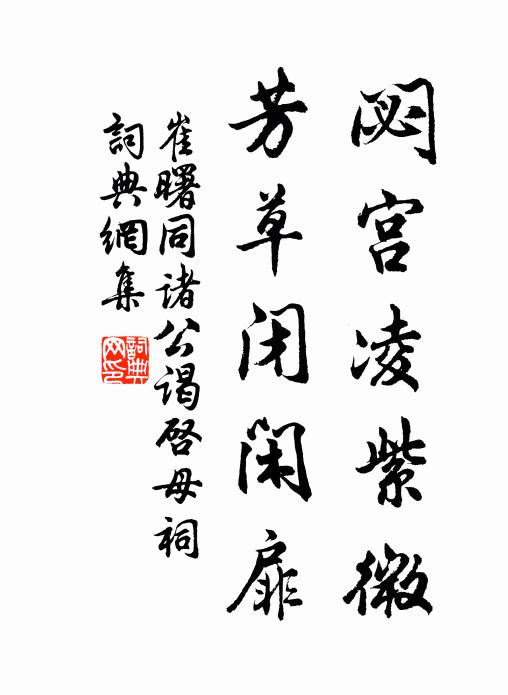 閟宫凌紫微
芳草闭闲扉
崔曙同诸公谒启母祠
詞典網集
詞典网印